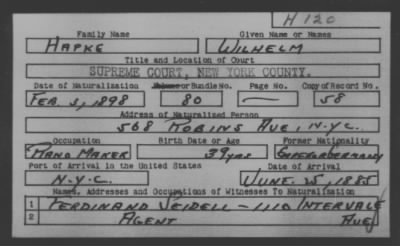 H 120
Family Name Given Name or Names
HAPKE WILHELM
Title and Location of Court
SUPREME COURT, NEW YORK COUNTY.
Date of Naturalization Volume or Bundle No. Page No. Copy of Record No.
FEB. 3, 1898 80 — 58
Address of Naturalized Person
568 ROBINS AVE, N.Y.C.
Occupation Birth Date or Age Former Nationality
PIANO MAKER 39 yrs GERMANY
Port of Arrival in the United States Date of Arrival
N.Y.C. JUNE 1885
Names, Addresses and Occupations of Witnesses To Naturalization
1 FERDINAND SEIDELL - 1110 INTERVALE
2 AGENT AVE